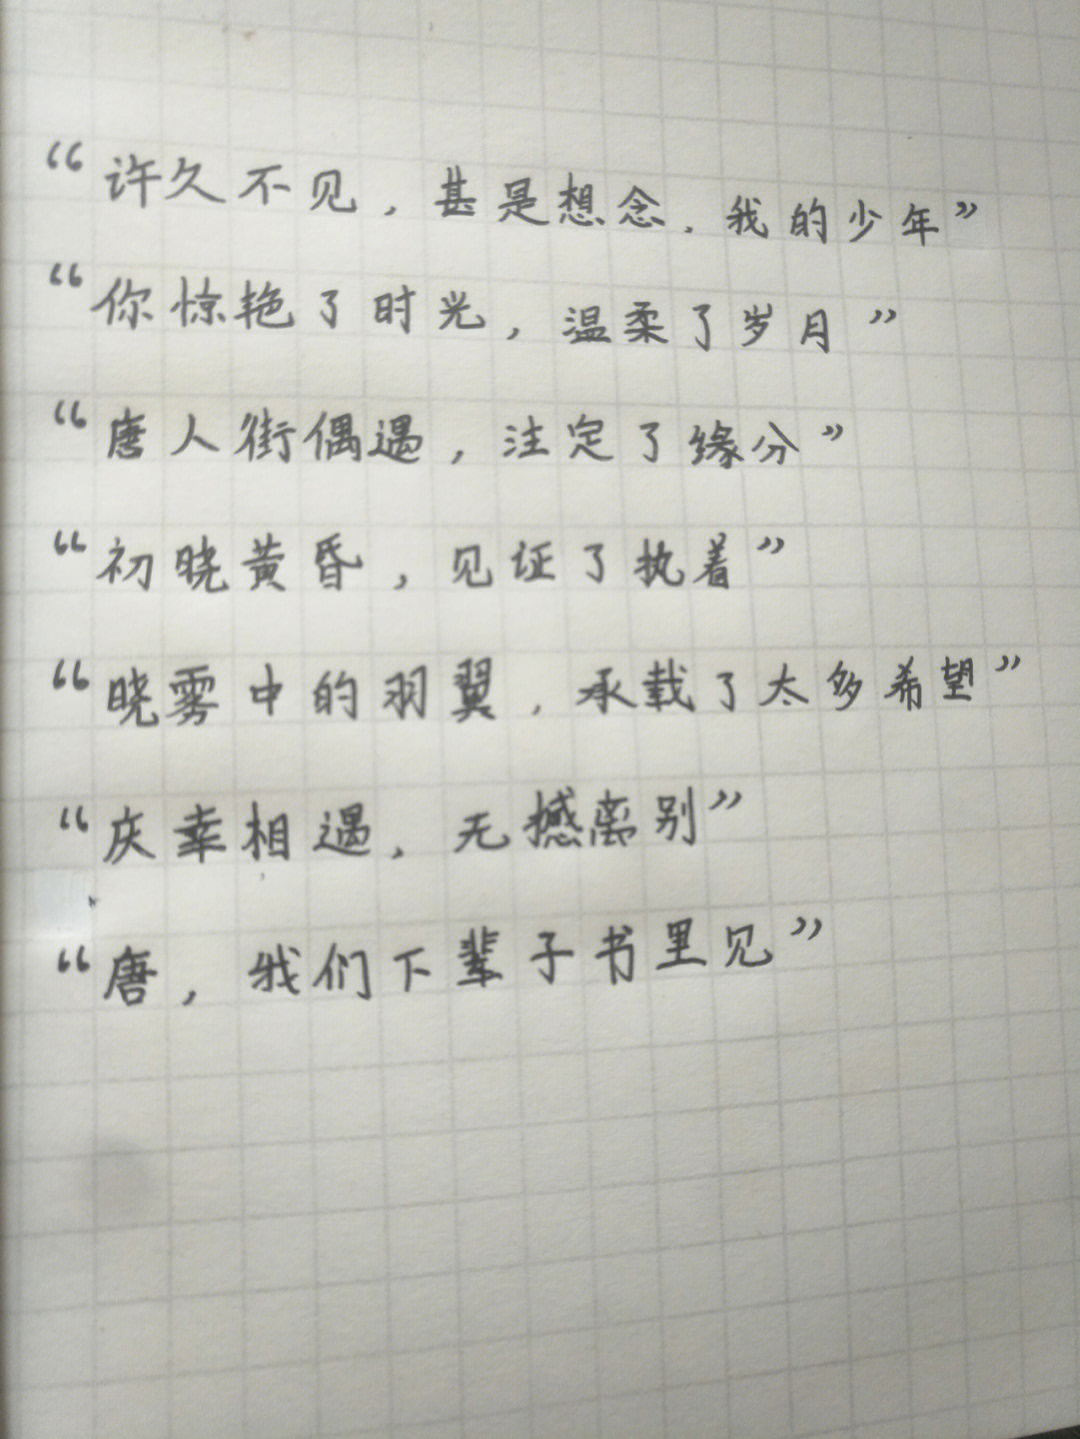 “许久不见，甚是想念，我的少年”
“你惊艳了时光，温柔了岁月”
“唐人街偶遇，注定了缘分”
“初晓黄昏，见证了执着”
“晓雾中的羽翼，承载了太多希望”
“庆幸相遇，无憾离别”
“唐，我们下辈子书里见”